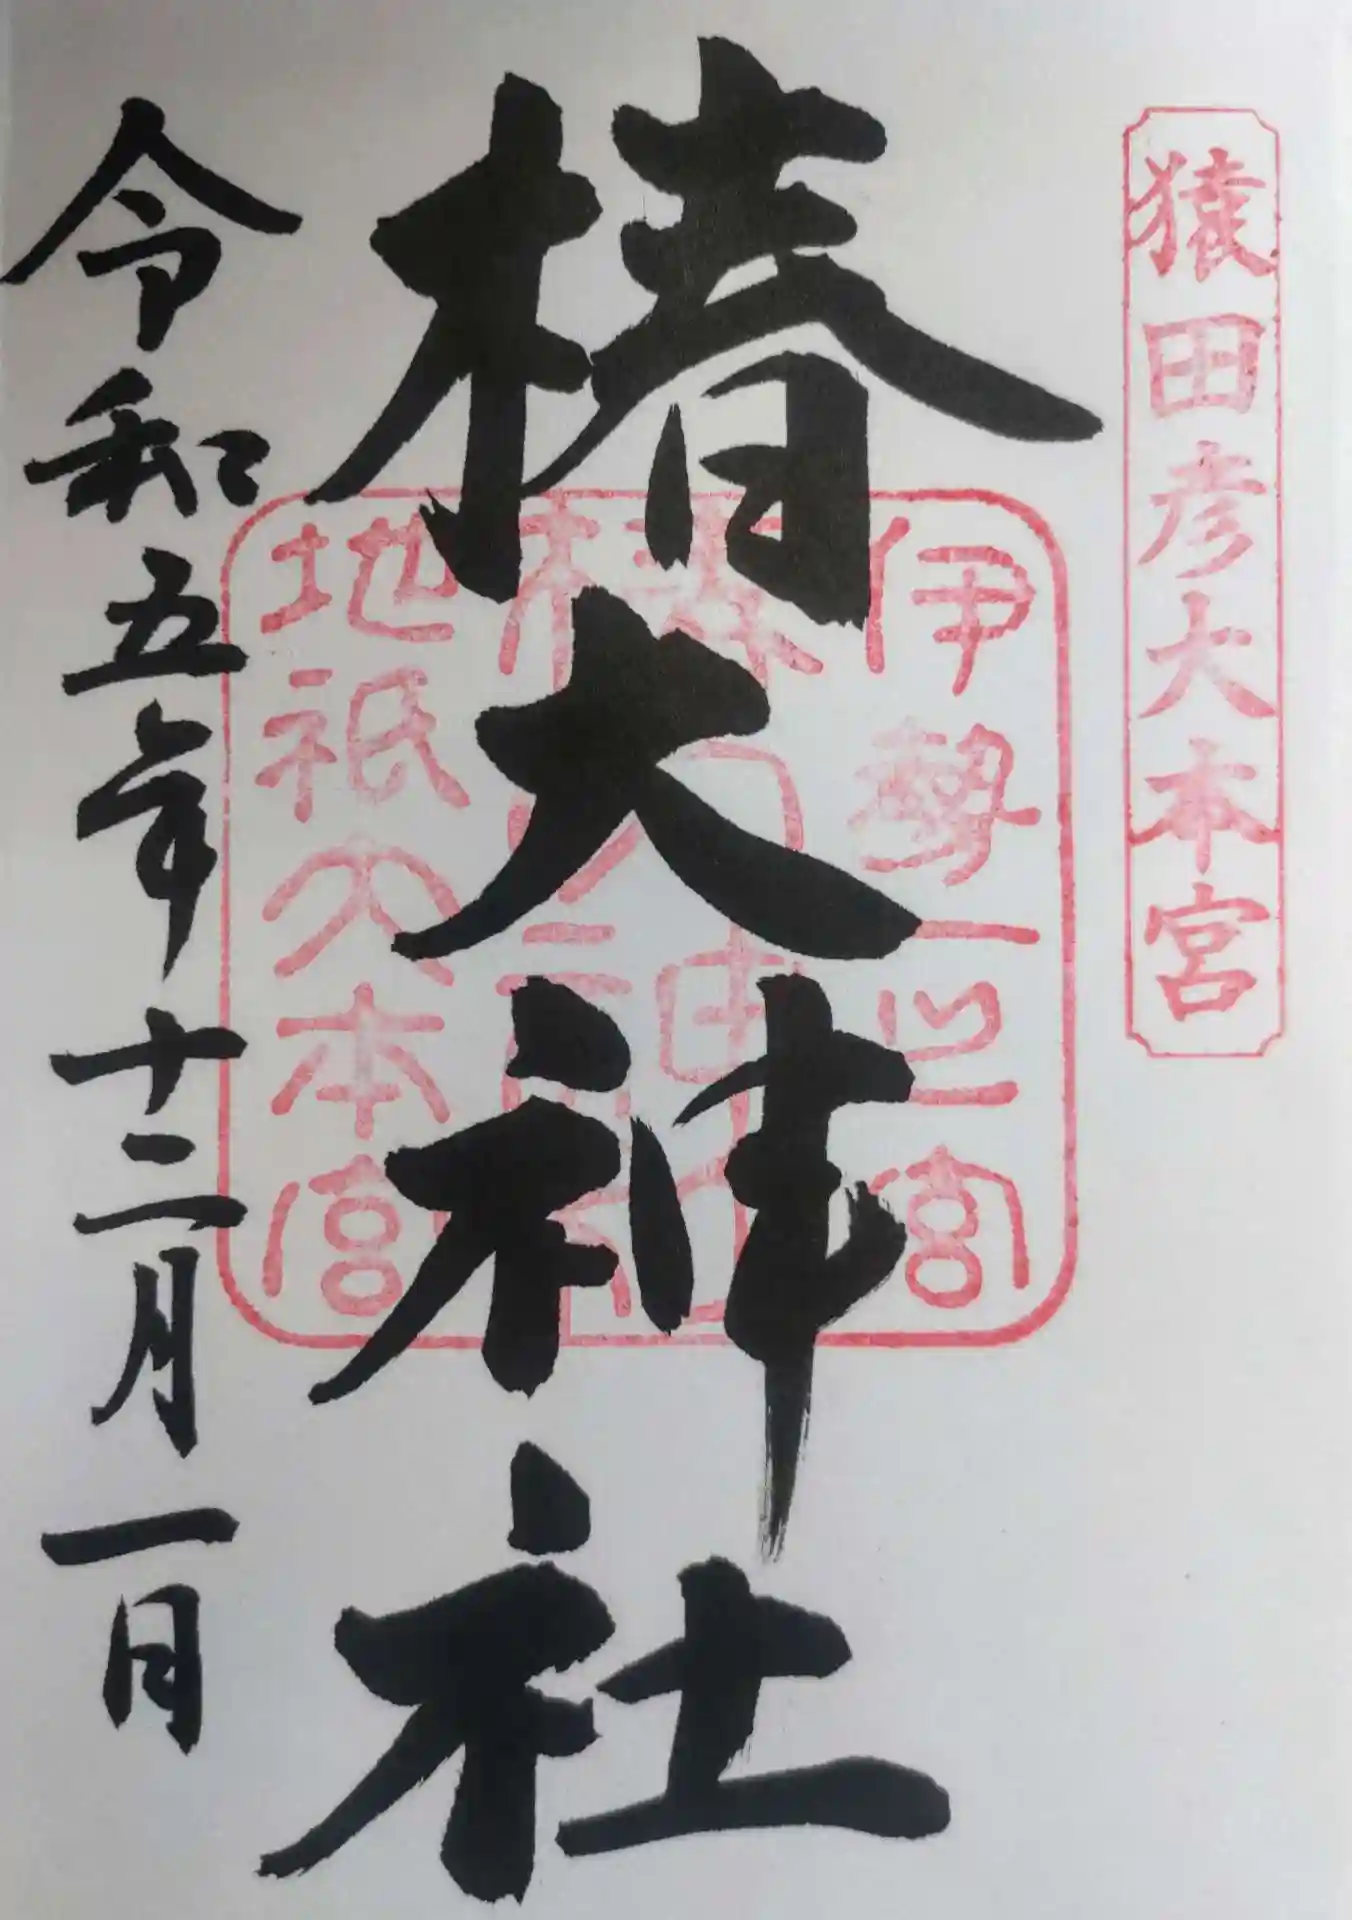 猿田彦大本宮
椿大神社
伊勢一之宮
椿大神社
地祇大本宮
令和五年十二月一日